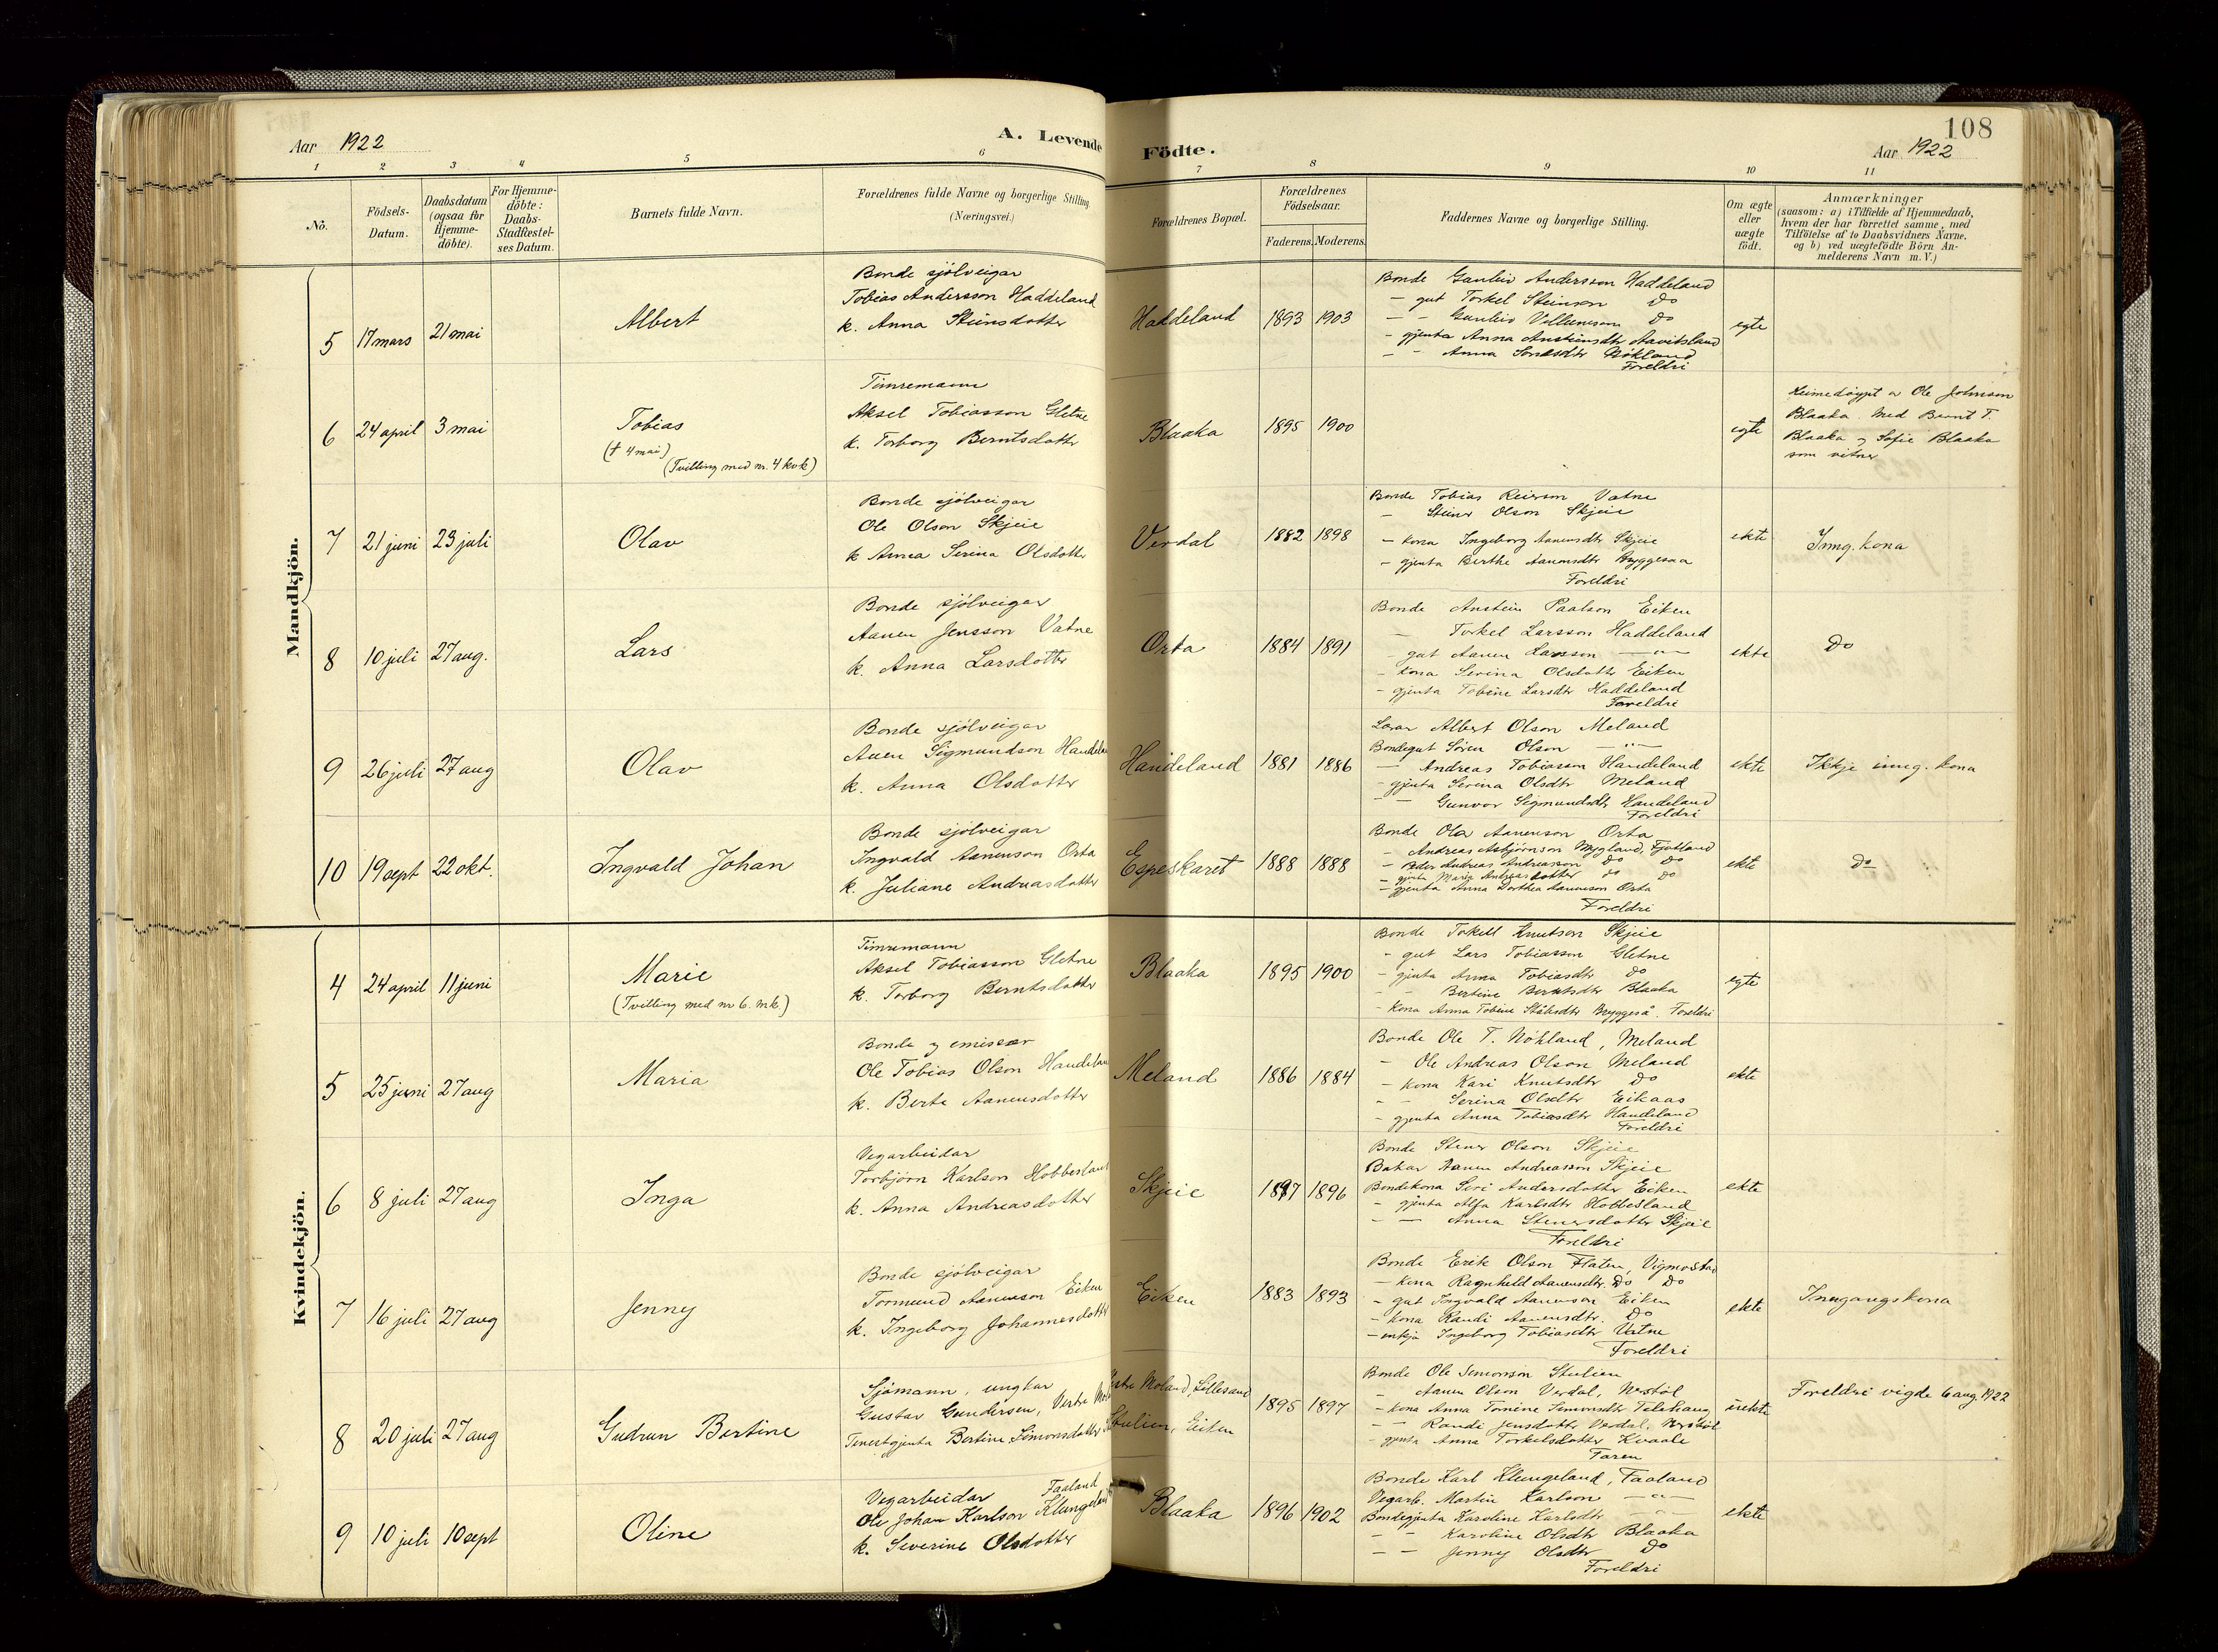 108
Aar 1922
A. Levende Födte.
Aar 1922
1 2 3 4 5 6 7 8 9 10 11
No.
Födsels-Datum.
Daabsdatum (ogsaa for Hjemme-döbte).
For Hjemme-döbte: Daabs-Stadfæstel-ses Datum.
Barnets fulde Navn.
Forældrenes fulde Navne og borgerlige Stilling.
(Næringsvei.)
Forældrenes Bopæl.
Forældrenes Födselsaar.
Faderens. Moderens.
Faddernes Navne og borgerlige Stilling.
Om ægte eller uægte födt.
Anmærkninger
(saasom: a) i Tilfælde af Hjemmedaab,
hvem der har forrettet samme, med
Tilföielse af to Daabsvidners Navne,
og b) ved uægtefödte Börn An-
melderens Navn m. V.)
Mandkjön.
5 17 mars 21 mai
Albert
Bonde sjölveigar
Tobias Andersson Haddeland
k. Anna Steinsdotter
Haddeland 1893 1903
Bonde Gunleiv Andersson Haddeland
- gut Torkel Steinson Do
- - Gunleiv Do
- gjenta Anna Austeinsdtr Aavitsland
- - Anna
Foreldri
egte
6 24 april 3 mai
Tobias
(† 4 mai)
(Tvilling med nr. 4 kvk)
Timremann
Aksel Tobiasson Gletne
k. Torborg Berntsdotter
Blaaka 1895 1900
egte
Heimedöypt av Ole Johnson
Blaaka. Med Bernt T.
Blaaka og Sofie Blaaka
som vitner
7 21 juni 23 juli
Olav
Bonde sjölveigar
Ole Olson Skjeie
k Anna Serina Olsdotter
Verdal 1882 1898
Bonde Tobias Reierson Vatne
- Steiner Olson Skjeie
- kona Ingeborg Aanensdtr Skjeie
- gjenta Berthe Aanensdtr Bryggesaa
Foreldri
ekte
Inng. kona
8 10 juli 27 aug.
Lars
Bonde sjölveigar
Aanen Jensson Vatne
k. Anna Larsdotter
Orta 1884 1891
Bonde Austein Paalson Eiken
- Torkel Larsson Haddeland
- gut Aanen Larsson — " —
- kona Serina Olsdotter Eiken
- gjenta Tobine Larsdtr Haddeland
Foreldri
ekte
Do
9 26 juli 27 aug
Olav
Bonde sjölveigar
Anen Sigmundson Handeland
k. Anna Olsdotter
Handeland 1881 1886
Lærar Albert Olson Meland
Bondegut Sören Olson — " —
- Andreas Tobiasson Handeland
- gjenta Serina Olsdtr Meland
- - Gunvor Sigmundsdtr Handeland
Foreldri
ekte
Ikkje inng. kona
10 19 sept 22 okt.
Ingvald Johan
Bonde sjölveigar
Ingvald Aanenson Orta
k. Juliane Andreasdotter
Espeskaret 1888 1888
Bonde Ola Aanenson Orta
- Andreas Asbjörnson Mygland, Fjotland
- Peder Andreas Andreasson do do
- gjenta Marie Andreasdotter do do
- gjenta Anna Dorthea Aanenson Orta
Foreldri
ekte
do
Kvindekjön.
4 24 april 11 juni
Marie
(Tvilling med nr 6. mk.)
Timremann
Aksel Tobiasson Gletne
k. Torborg Berntsdotter
Blaaka 1895 1900
Bonde Torkell Knutson Skjeie
- gut Lars Tobiasson Gletne
- gjenta Anna Tobiasdtr Do
- - Bertine Berntsdtr Blaaka
- kona Anna Tobine Bryggeså. Foreldri
egte
5 25 juni 27 aug
Maria
Bonde og emissær
Ole Tobias Olson Handeland
k. Berte Aanensdotter
Meland 1886 1884
Bonde Ole T. Nökland, Meland
- Ole Andreas Olson Meland
- kona Kari Knutsdtr Do
- - Serina Olsdtr Eikaas
- gjenta Anna Tobiasdtr Handeland
Foreldri
ekte
6 8 juli 27 aug
Inga
Vegarbeidar
Torbjörn Karlson Hobbesland
k. Anna Andreasdotter
Skjeie 1897 1896
Bonde Stener Olson Skjeie
Bakar Aanen Andreasson Skjeie
Bondekona Siri Andersdotter Eiken
- gjenta Alfa Karlsdtr Hobbesland
- — Anna Stenersdotter Skjeie
Foreldri
ekte
7 16 juli 27 aug
Jenny
Bonde sjölveigar
Tormund Aanenson Eiken
k. Ingeborg Johannesdotter
Eiken 1883 1893
Bonde Erik Olson Flaten, Vigmostad
- kona Ragnhild Aanensdtr. Do Do
- gut Ingvald Aanenson Eiken
- kona Randi Aanensdtr. Do
- enkja Ingeborg Tobiasdtr Vatne
Foreldri
ekte
Inngangskona
8 20 juli 27 aug
Gudrun Bertine
Sjömann, ungkar
Gustav Gundersen, Vestre Moland, Lillesand
Tenestgjenta Bertine Simonsdotter Stulien, Eiken
1895 1897
Bonde Ole Simonson Stulien
- Aanen Olson Verdal, Nerstöl
- kona Anna Tomine Simonsdtr
- - Randi Jensdotter Verdal, Nerstöl
- gjenta Anna Torkelsdotter Kvaale
Faren
uekte
Foreldri vigde 6 aug. 1922
9 10 juli 10 sept
Oline
Vegarbeidar Faaland
Ole Johan Karlson Klungeland
k. Severine Olsdotter
Blaaka 1896 1902
Bonde Karl Klungeland, Faaland
Vegarb. Martin Karlson — " —
Bondegjenta Karoline Karlsdtr — " —
- - Karoline Olsdtr Blaaka
- - Jenny Olsdtr Do
Foreldri
ekte